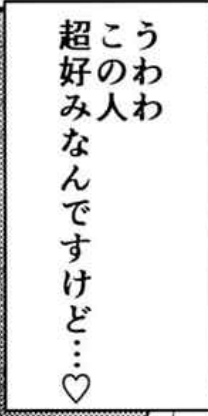 うわわ
この人
超好みなんですけど…♡